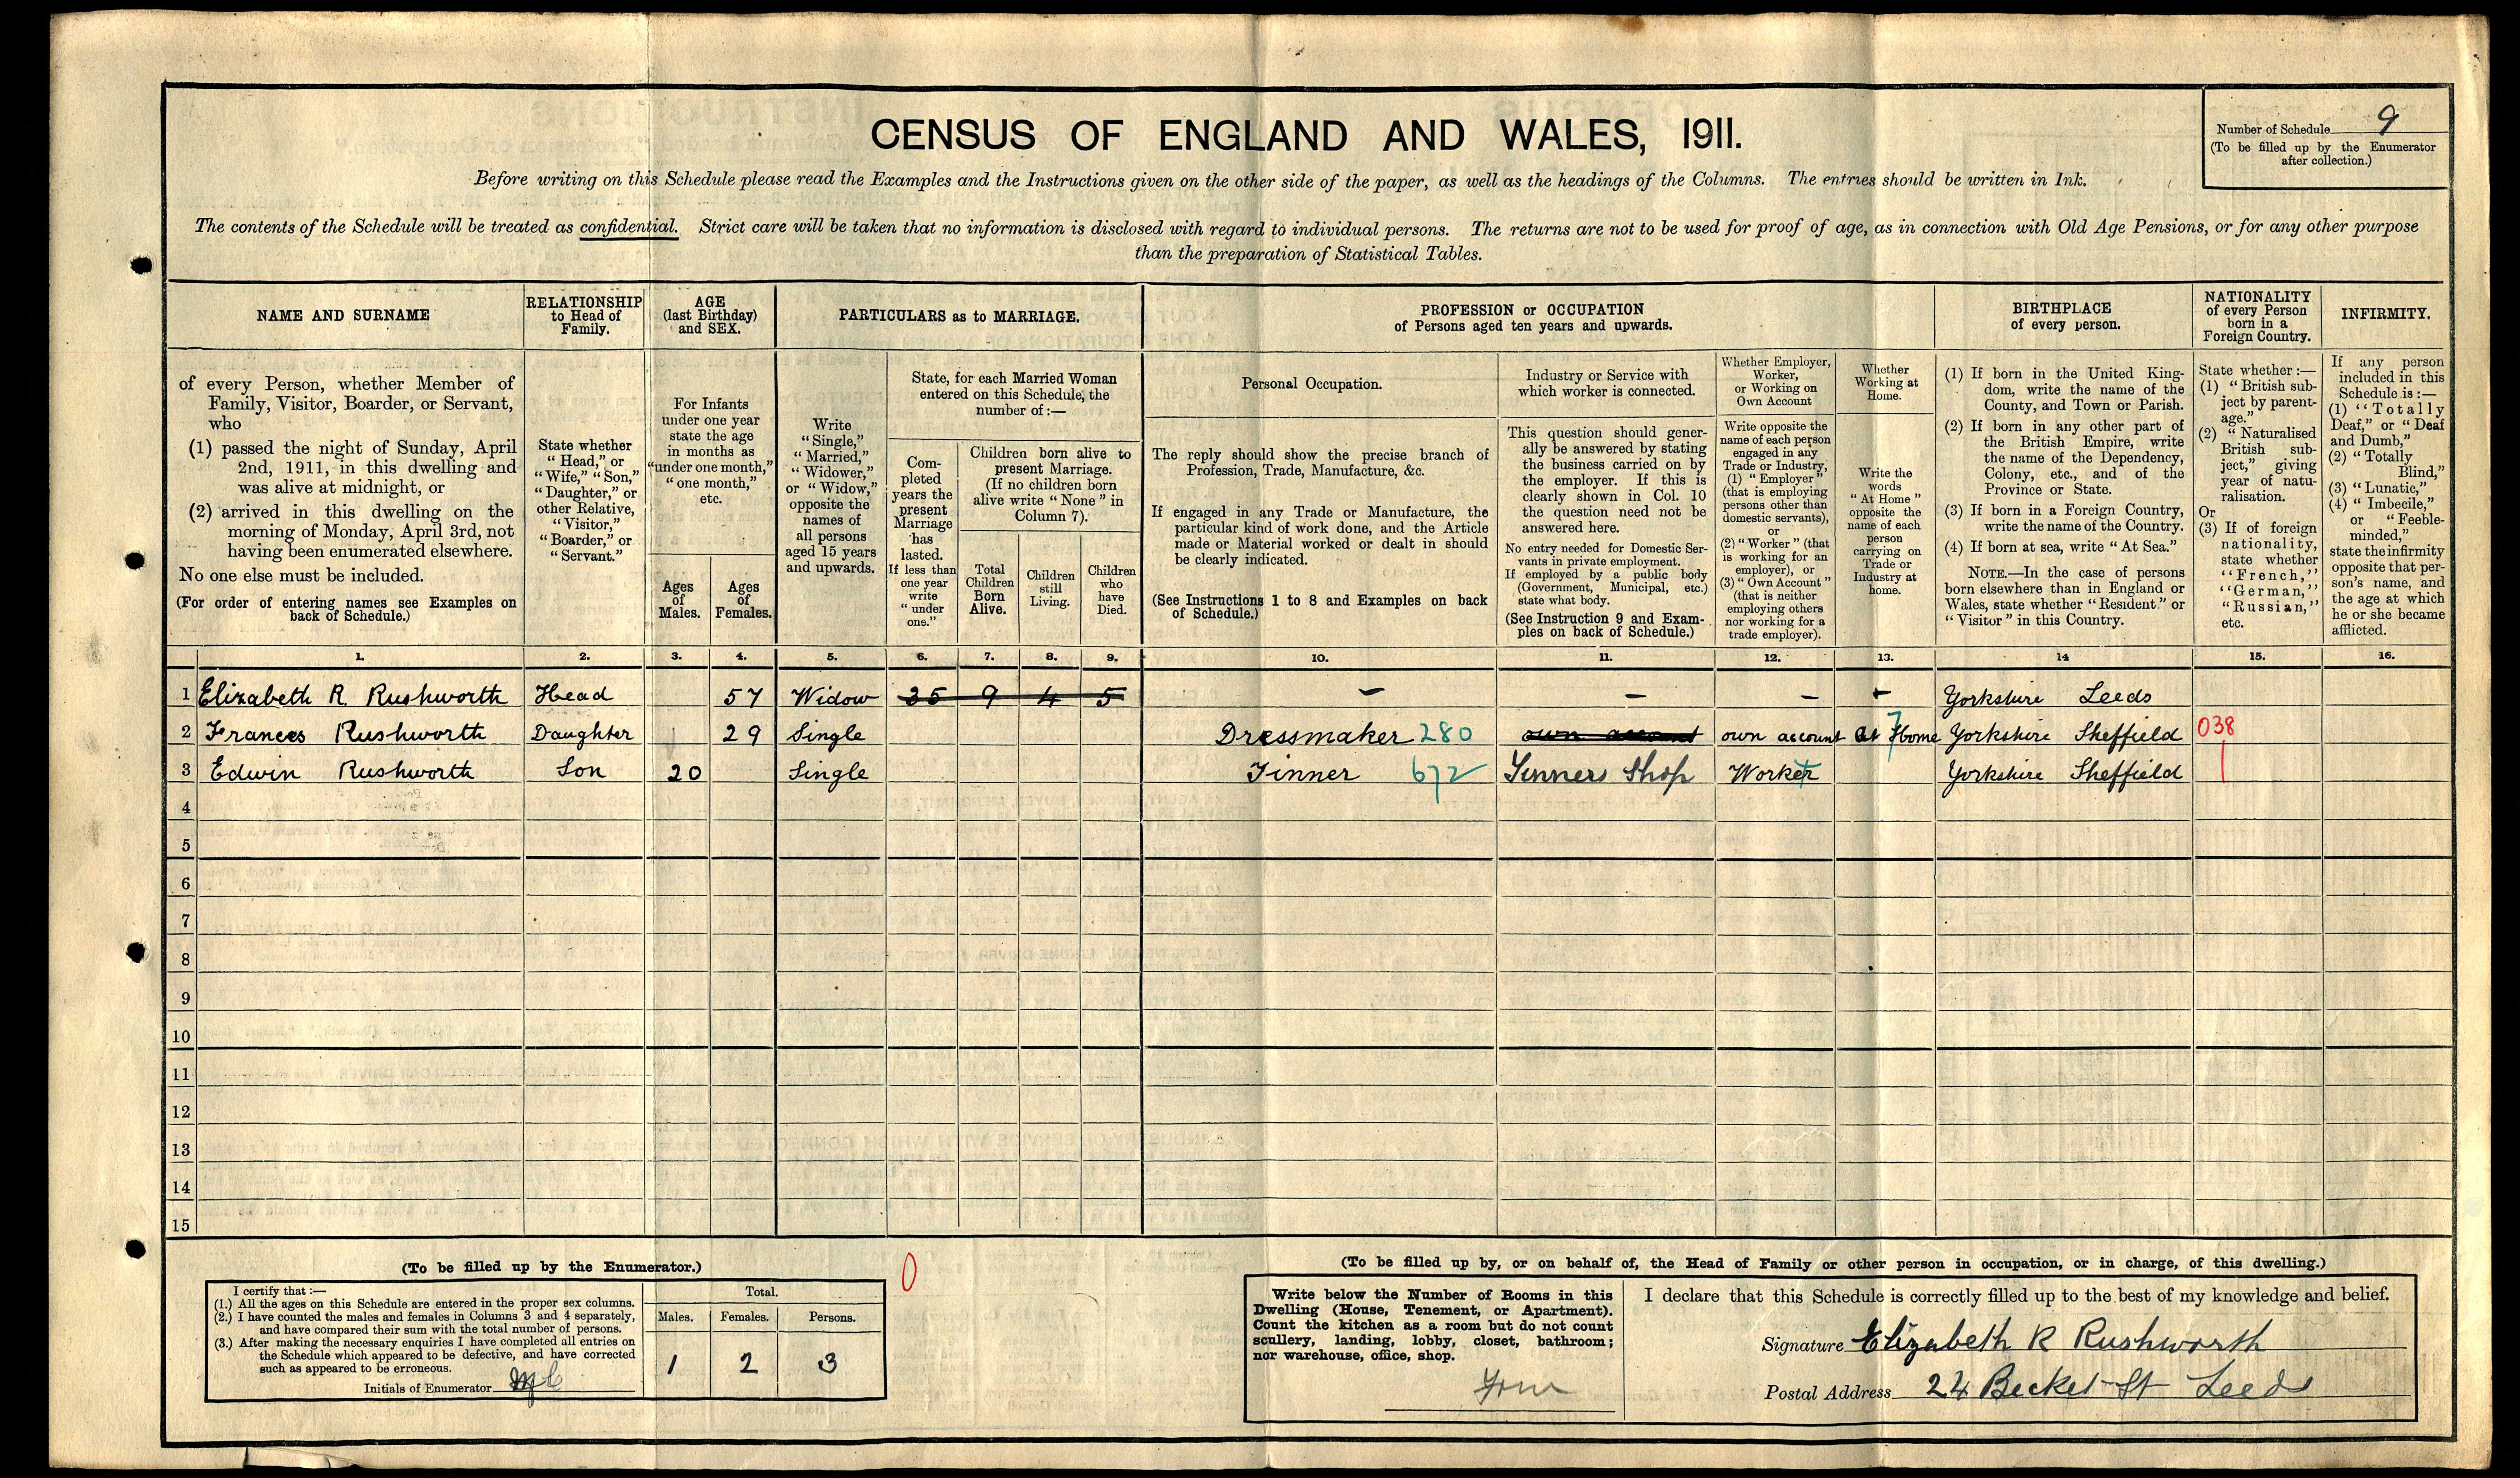 CENSUS OF ENGLAND AND WALES, 1911.
Number of Schedule 9
(To be filled up by the Enumerator
after collection.)
Before writing on this Schedule please read the Examples and the Instructions given on the other side of the paper, as well as the headings of the Columns. The entries should be written in Ink.
The contents of the Schedule will be treated as confidential. Strict care will be taken that no information is disclosed with regard to individual persons. The returns are not to be used for proof of age, as in connection with Old Age Pensions, or for any other purpose
than the preparation of Statistical Tables.
NAME AND SURNAME
of every Person, whether Member of
Family, Visitor, Boarder, or Servant,
who
(1) passed the night of Sunday, April
2nd, 1911, in this dwelling and
was alive at midnight, or
(2) arrived in this dwelling on the
morning of Monday, April 3rd, not
having been enumerated elsewhere.
No one else must be included.
(For order of entering names see Examples on
back of Schedule.)
RELATIONSHIP
to Head of
Family.
State whether
"Head," or
"Wife," "Son,"
"Daughter," or
other Relative,
"Visitor,"
"Boarder," or
"Servant."
AGE
(last Birthday)
and SEX.
For Infants
under one year
state the age
in months as
"under one month,"
"one month,"
etc.
Ages
of
Males.
Ages
of
Females.
PARTICULARS as to MARRIAGE.
Write
"Single,"
"Married,"
"Widower,"
or "Widow,"
opposite the
names of
all persons
aged 15 years
and upwards.
State, for each Married Woman
entered on this Schedule, the
number of:—
Com-
pleted
years the
present
Marriage
has
lasted.
If less than
one year
write
"under
one."
Children born alive to
present Marriage.
(If no children born
alive write "None" in
Column 7).
Total
Children
Born
Alive.
Children
still
Living.
Children
who
have
Died.
PROFESSION or OCCUPATION
of Persons aged ten years and upwards.
Personal Occupation.
The reply should show the precise branch of
Profession, Trade, Manufacture, &c.
If engaged in any Trade or Manufacture, the
particular kind of work done, and the Article
made or Material worked or dealt in should
be clearly indicated.
(See Instructions 1 to 8 and Examples on back
of Schedule.)
Industry or Service with
which worker is connected.
This question should gener-
ally be answered by stating
the business carried on by
the employer. If this is
clearly shown in Col. 10
the question need not be
answered here.
No entry needed for Domestic Ser-
vants in private employment.
If employed by a public body
(Government, Municipal, etc.)
state what body.
(See Instruction 9 and Exam-
ples on back of Schedule.)
Whether Employer,
Worker,
or Working on
Own Account
Write opposite the
name of each person
engaged in any
Trade or Industry,
(1) "Employer"
(that is employing
persons other than
domestic servants),
or
(2) "Worker" (that
is working for an
employer), or
(3) "Own Account"
(that is neither
employing others
nor working for a
trade employer).
Whether
Working at
Home.
Write the
words
"At Home"
opposite the
name of each
person
carrying on
Trade or
Industry at
home.
BIRTHPLACE
of every person.
(1) If born in the United King-
dom, write the name of the
County, and Town or Parish.
(2) If born in any other part of
the British Empire, write
the name of the Dependency,
Colony, etc., and of the
Province or State.
(3) If born in a Foreign Country,
write the name of the Country.
(4) If born at sea, write "At Sea."
NOTE.—In the case of persons
born elsewhere than in England or
Wales, state whether "Resident" or
"Visitor" in this Country.
NATIONALITY
of every Person
born in a
Foreign Country.
State whether:—
(1) "British sub-
ject by parent-
age."
(2) "Naturalised
British sub-
ject," giving
year of natu-
ralisation.
Or
(3) If of foreign
nationality,
state whether
"French,"
"German,"
"Russian,"
etc.
INFIRMITY.
If any person
included in this
Schedule is:—
(1) "Totally
Deaf," or "Deaf
and Dumb,"
(2) "Totally
Blind,"
(3) "Lunatic,"
(4) "Imbecile,"
or "Feeble-
minded,"
state the infirmity
opposite that per-
son's name, and
the age at which
he or she became
afflicted.
1. 2. 3. 4. 5. 6. 7. 8. 9. 10. 11. 12. 13. 14 15. 16.
1 Elizabeth R. Rushworth Head 57 Widow 35 9 4 5 – – – – Yorkshire Leeds
2 Frances Rushworth Daughter 29 Single Dressmaker 280 own account own account At Home 7 Yorkshire Sheffield 038
3 Edwin Rushworth Son 20 Single Tinner 672 Tinners Shop Worker Yorkshire Sheffield
4
5
6
7
8
9
10
11
12
13
14
15
(To be filled up by the Enumerator.)
I certify that:—
(1.) All the ages on this Schedule are entered in the proper sex columns.
(2.) I have counted the males and females in Columns 3 and 4 separately,
and have compared their sum with the total number of persons.
(3.) After making the necessary enquiries I have completed all entries on
the Schedule which appeared to be defective, and have corrected
such as appeared to be erroneous.
Initials of Enumerator
Total.
Males. Females. Persons.
1 2 3
0
(To be filled up by, or on behalf of, the Head of Family or other person in occupation, or in charge, of this dwelling.)
Write below the Number of Rooms in this
Dwelling (House, Tenement, or Apartment).
Count the kitchen as a room but do not count
scullery, landing, lobby, closet, bathroom;
nor warehouse, office, shop.
Four
I declare that this Schedule is correctly filled up to the best of my knowledge and belief.
Signature Elizabeth R Rushworth
Postal Address 24 Becket St Leeds